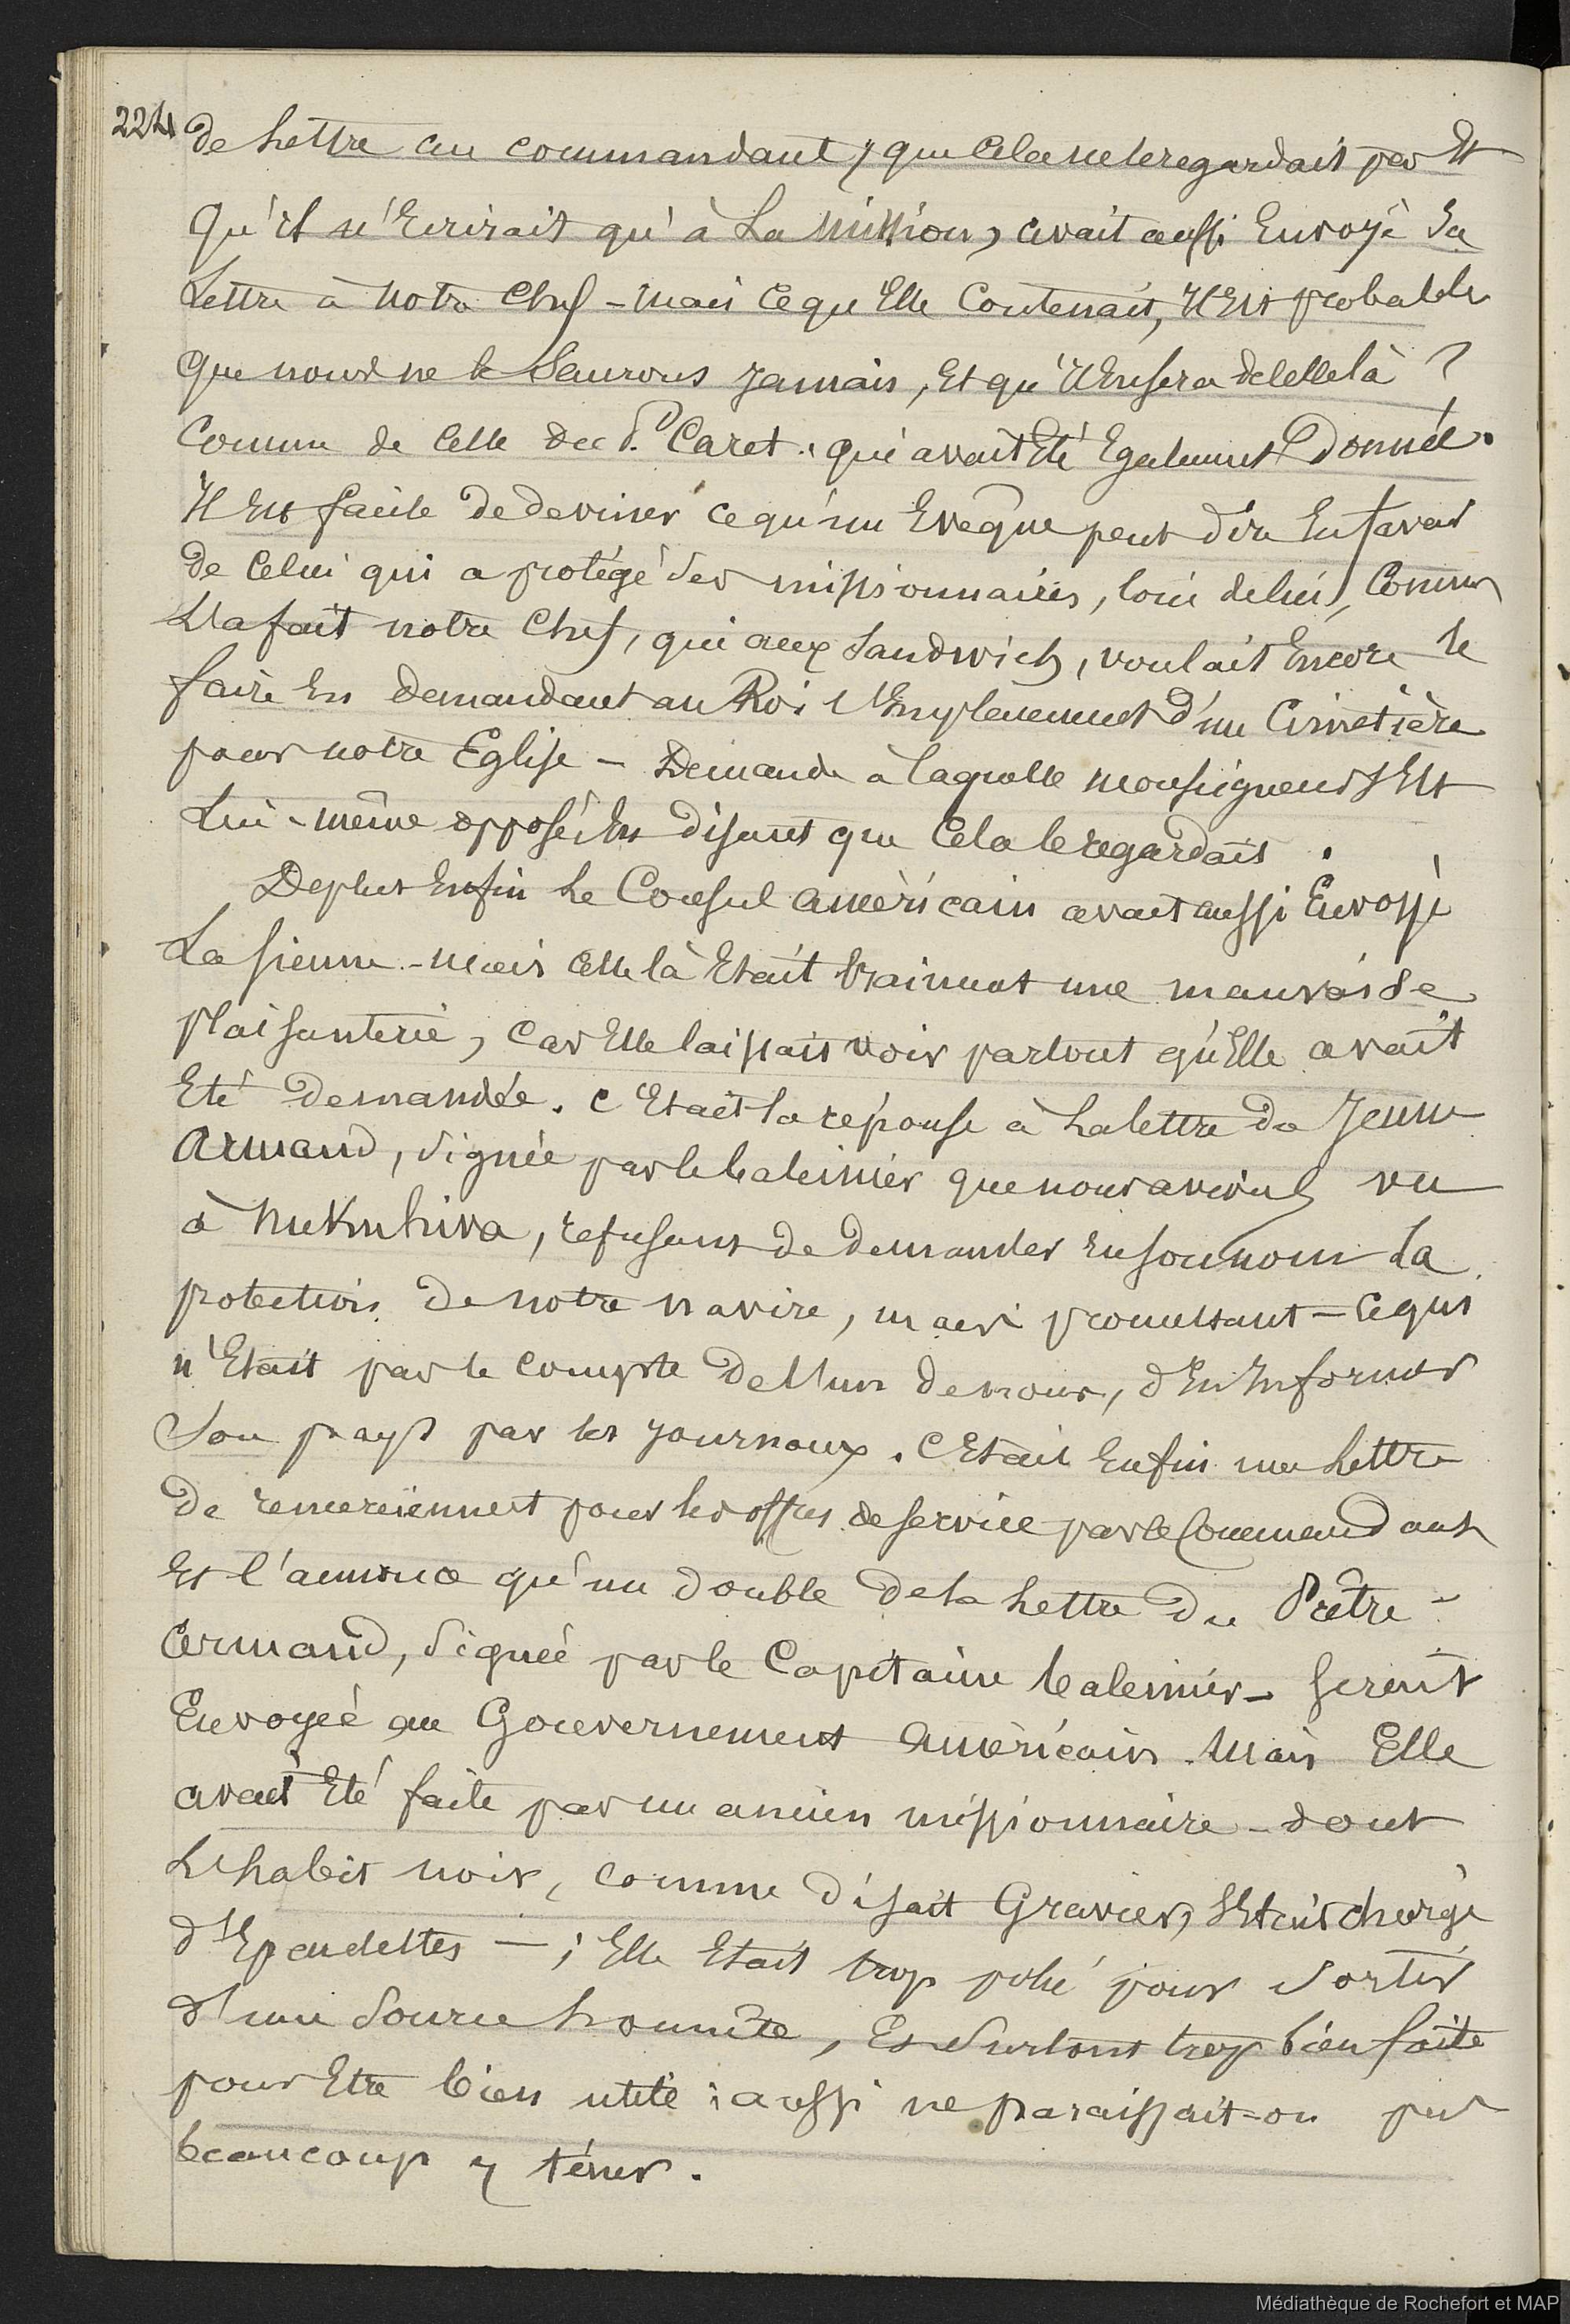 224
de lettre au commandant, que cela ne le regardait pas Et
Qu'il n'Ecrirait qu'à La Mission, avait aussi Envoyé Sa
Lettre à notre Chef - mais ce qu'Elle Contenait, Il Est probable
Que nous ne le Saurons Jamais, Et qu'Il En sera de Celle là ?
Comme de Celle du P. Caret. qui avait Eté Egalement Donnée.
Il Est facile de deviner ce qu'un Evêque peut dire En faveur
de Celui qui a protégé des missionnaires, loin de lui, Comme
L'a fait notre Chef, qui aux Sandwich, voulait Encore le
faire En demandant au Roi l'Emplacement d'un Cimetière
pour notre Eglise - Demande à laquelle monseigneur s'Est
Lui-même opposé, En disant que Cela le regardait.
De plus Enfin Le Consul Américain avait aussi Envoyé
La sienne - mais celle là Etait vraiment une mauvaise
plaisanterie, Car Elle laissait voir partout qu'Elle avait
Eté Demandée. C'Etait la réponse à La lettre du Jeune
Armand, Signée par le baleinier que nous avions vu
à Nukuhiva, refusant de demander En son nom la
protection de notre navire, mais promettant - Ce qui
n'Etait pas le Compte de l'un de nous, d'En Informer
Son pays par les Journaux. C'Etait Enfin une Lettre
de remerciement pour les offres de service par le Commandant
Et l'annonce qu'un double de la Lettre du Prêtre
Armand, Signée par le Capitaine baleinier - serait
Envoyée au Gouvernement Américain. Mais Elle
avait Eté faite par un ancien missionnaire - dont
L'habit noir, comme disait Gravier, s'Etait chargé
d'Epaulettes - ; Elle Etait trop polie pour Sortir
d'une Source honnête, Et Surtout trop bien faite
pour Etre bien utile : aussi ne paraissait-on pas
beaucoup y tenir.
Médiathèque de Rochefort et MAP